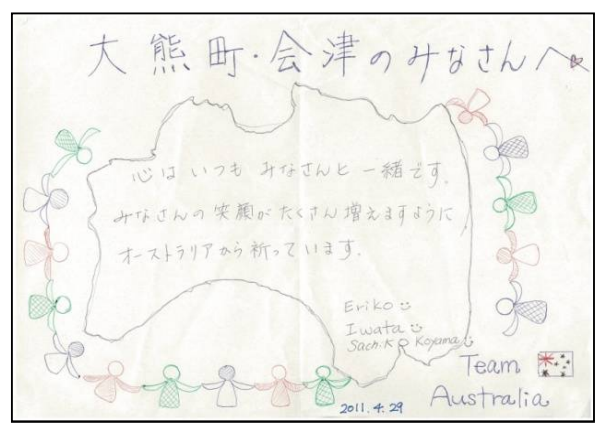 大熊町・会津のみなさんへ
心はいつも みなさんと 一緒です。
みなさんの笑顔が たくさん増えますように
オーストラリアから祈っています。
Eriko
Iwata
Sachiko Koyama
Team
Australia
2011.4.29